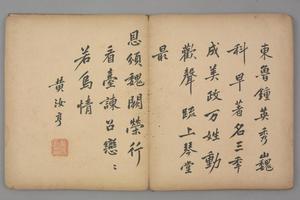 東魯鍾英秀巍
科早著名三年
成美政萬姓動
歡聲臨上琴堂
最
恩頌魏闕榮行
看臺諫召戀〻
若烏情
黄汝亨